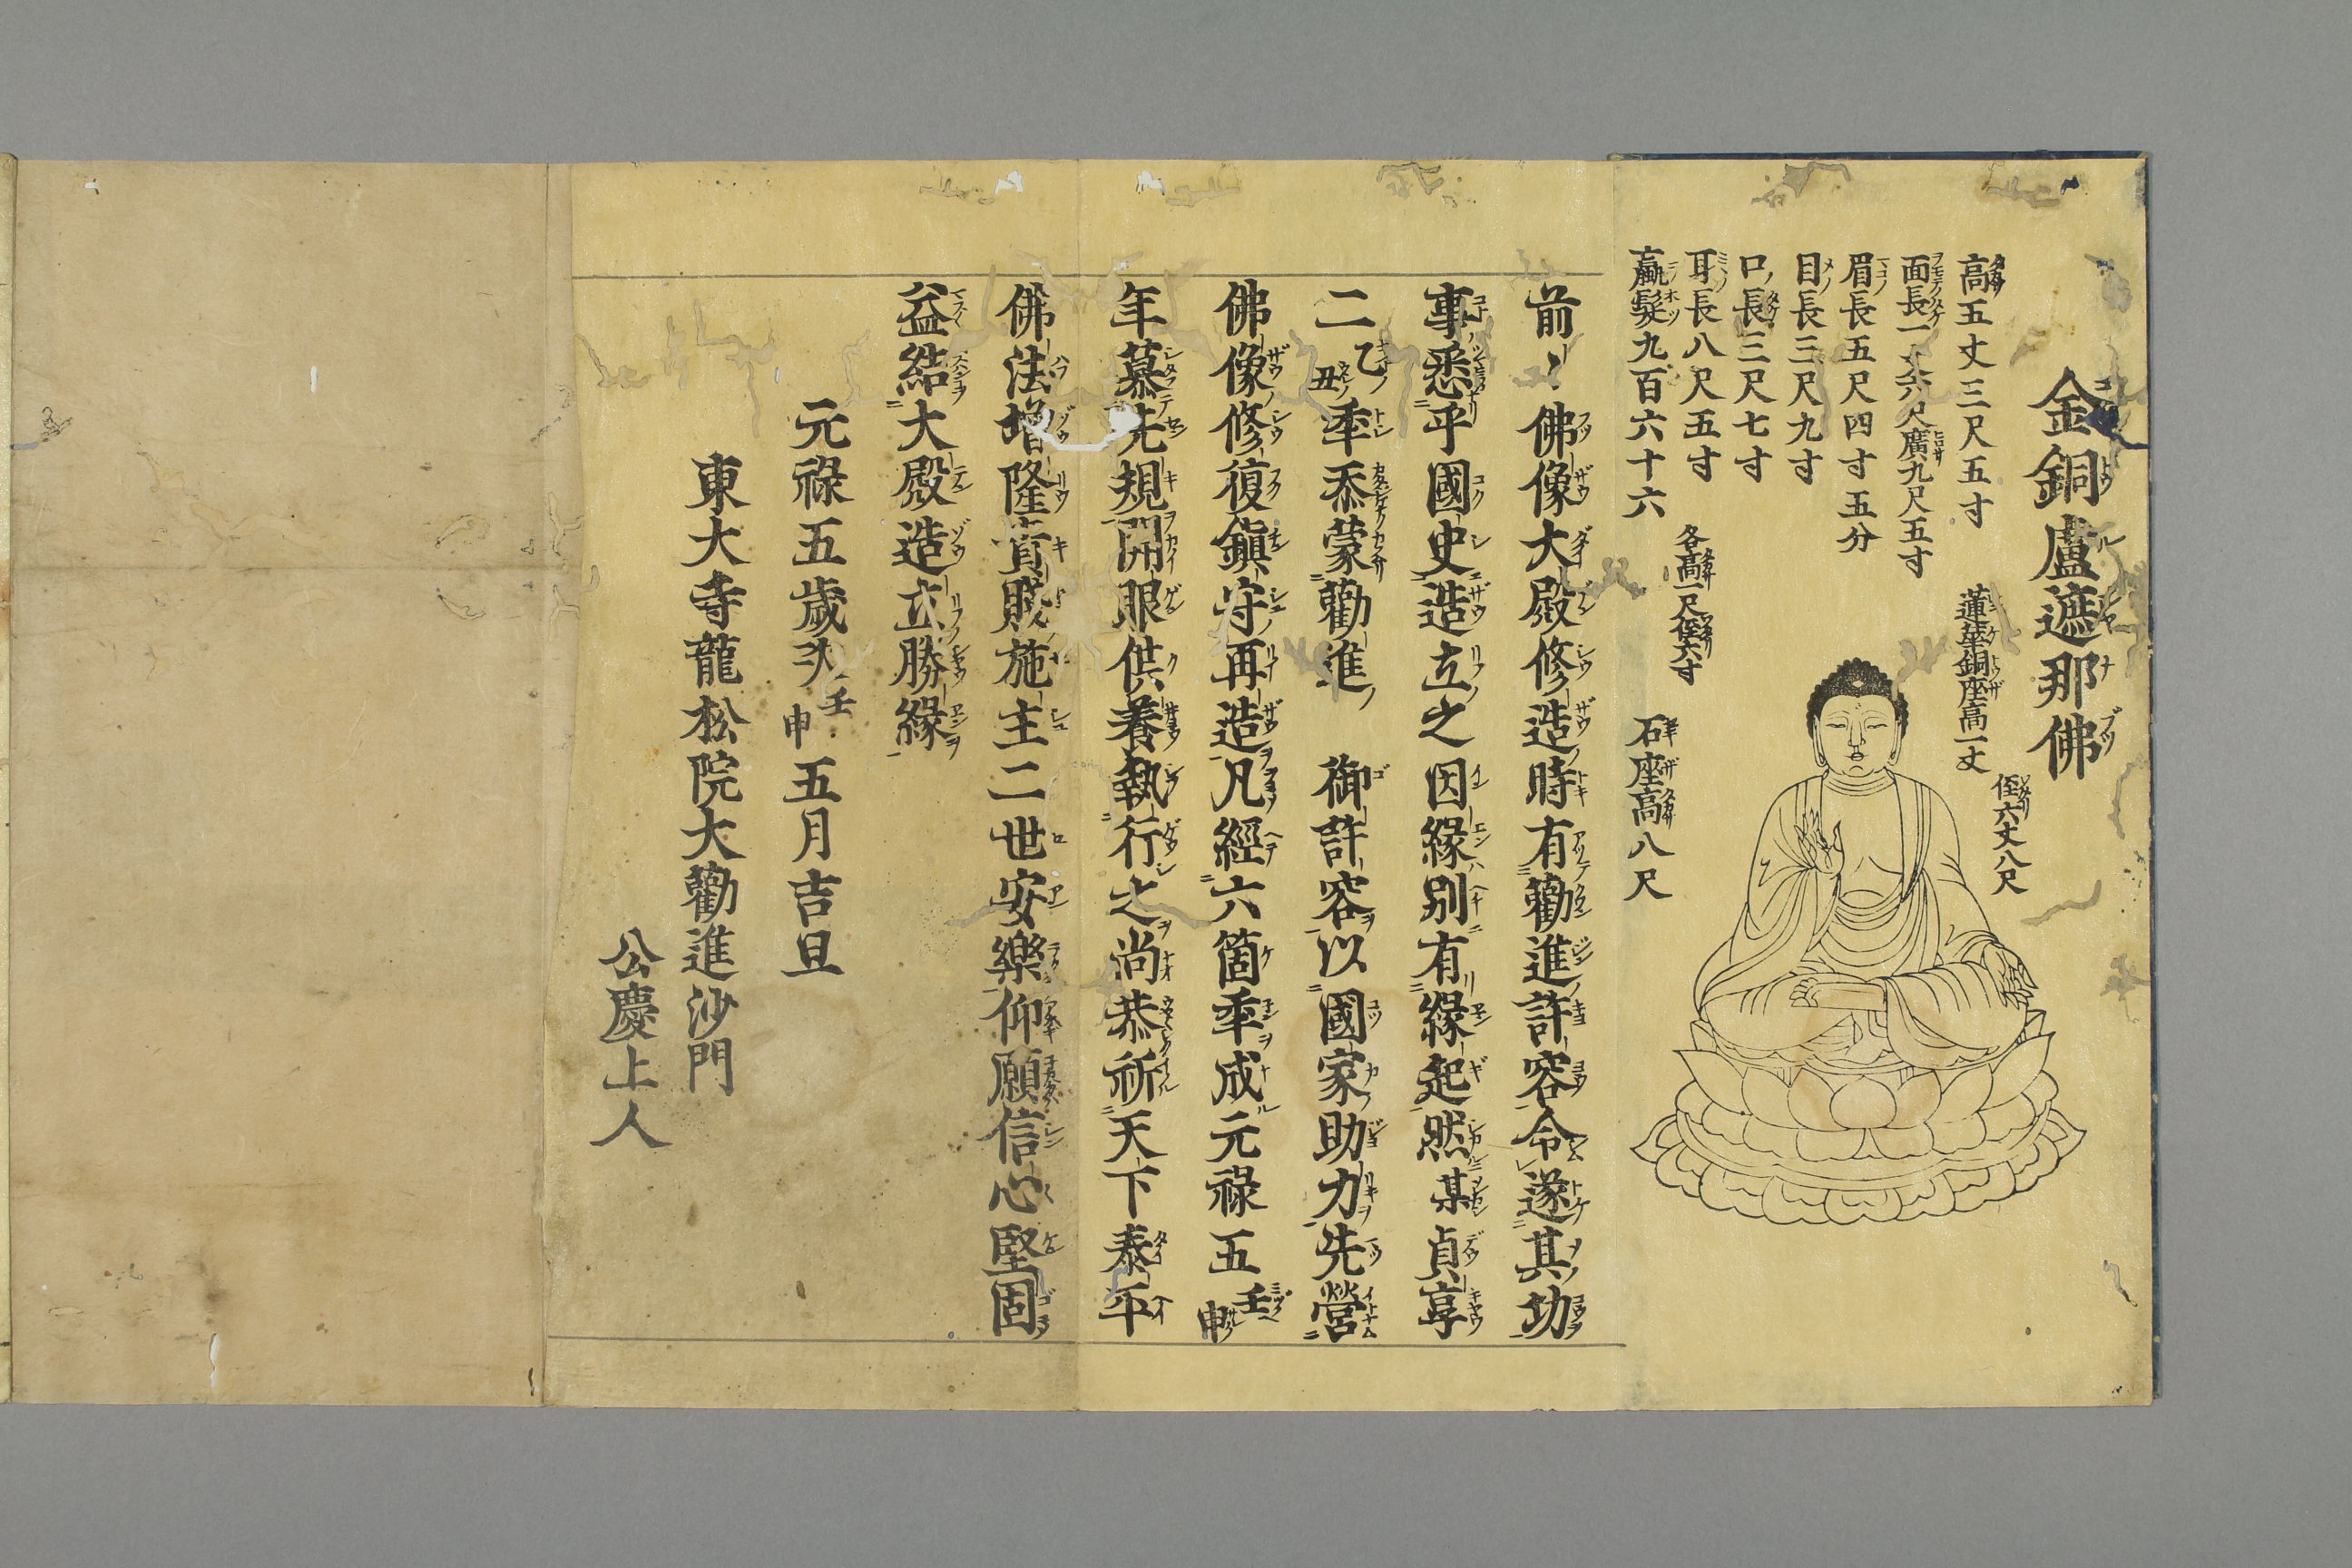 金銅盧遮那佛
高五丈三尺五寸
面長一丈六尺廣九尺五寸
眉長五尺四寸五分
目長三尺九寸
口長三尺七寸
耳長八尺五寸
螺髮九百六十六
各高一尺徑六寸
蓮華銅座高一丈
徑六丈八尺
石座高八尺
前々佛像大殿修造時有勸進許容令遂其功
事悉乎國史造立之因緣別有緣起然某貞享
二乙丑年忝蒙勸進 御許容以國家助力先營
佛像修復鎮守再造凡經六箇年成元祿五壬申
年慕先規開眼供養執行之尚恭祈天下泰平
佛法增隆貴賤施主二世安樂仰願信心堅固
益結大殿造立勝緣
元祿五歲次壬申五月吉旦
東大寺龍松院大勸進沙門
公慶上人